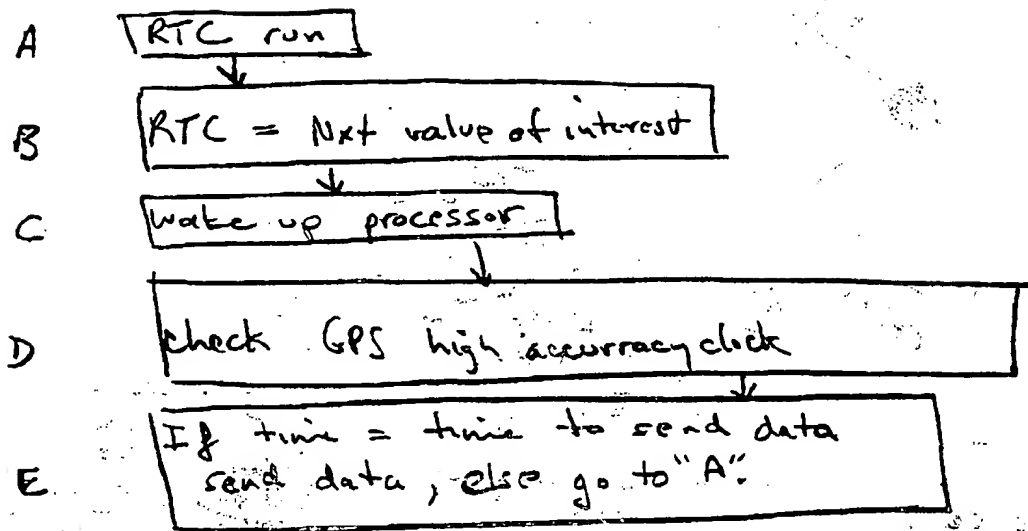 A RTC run
B RTC = Nxt value of interest
C wake up processor
D check GPS high accurracy clock
E If time = time to send data
send data, else go to "A".